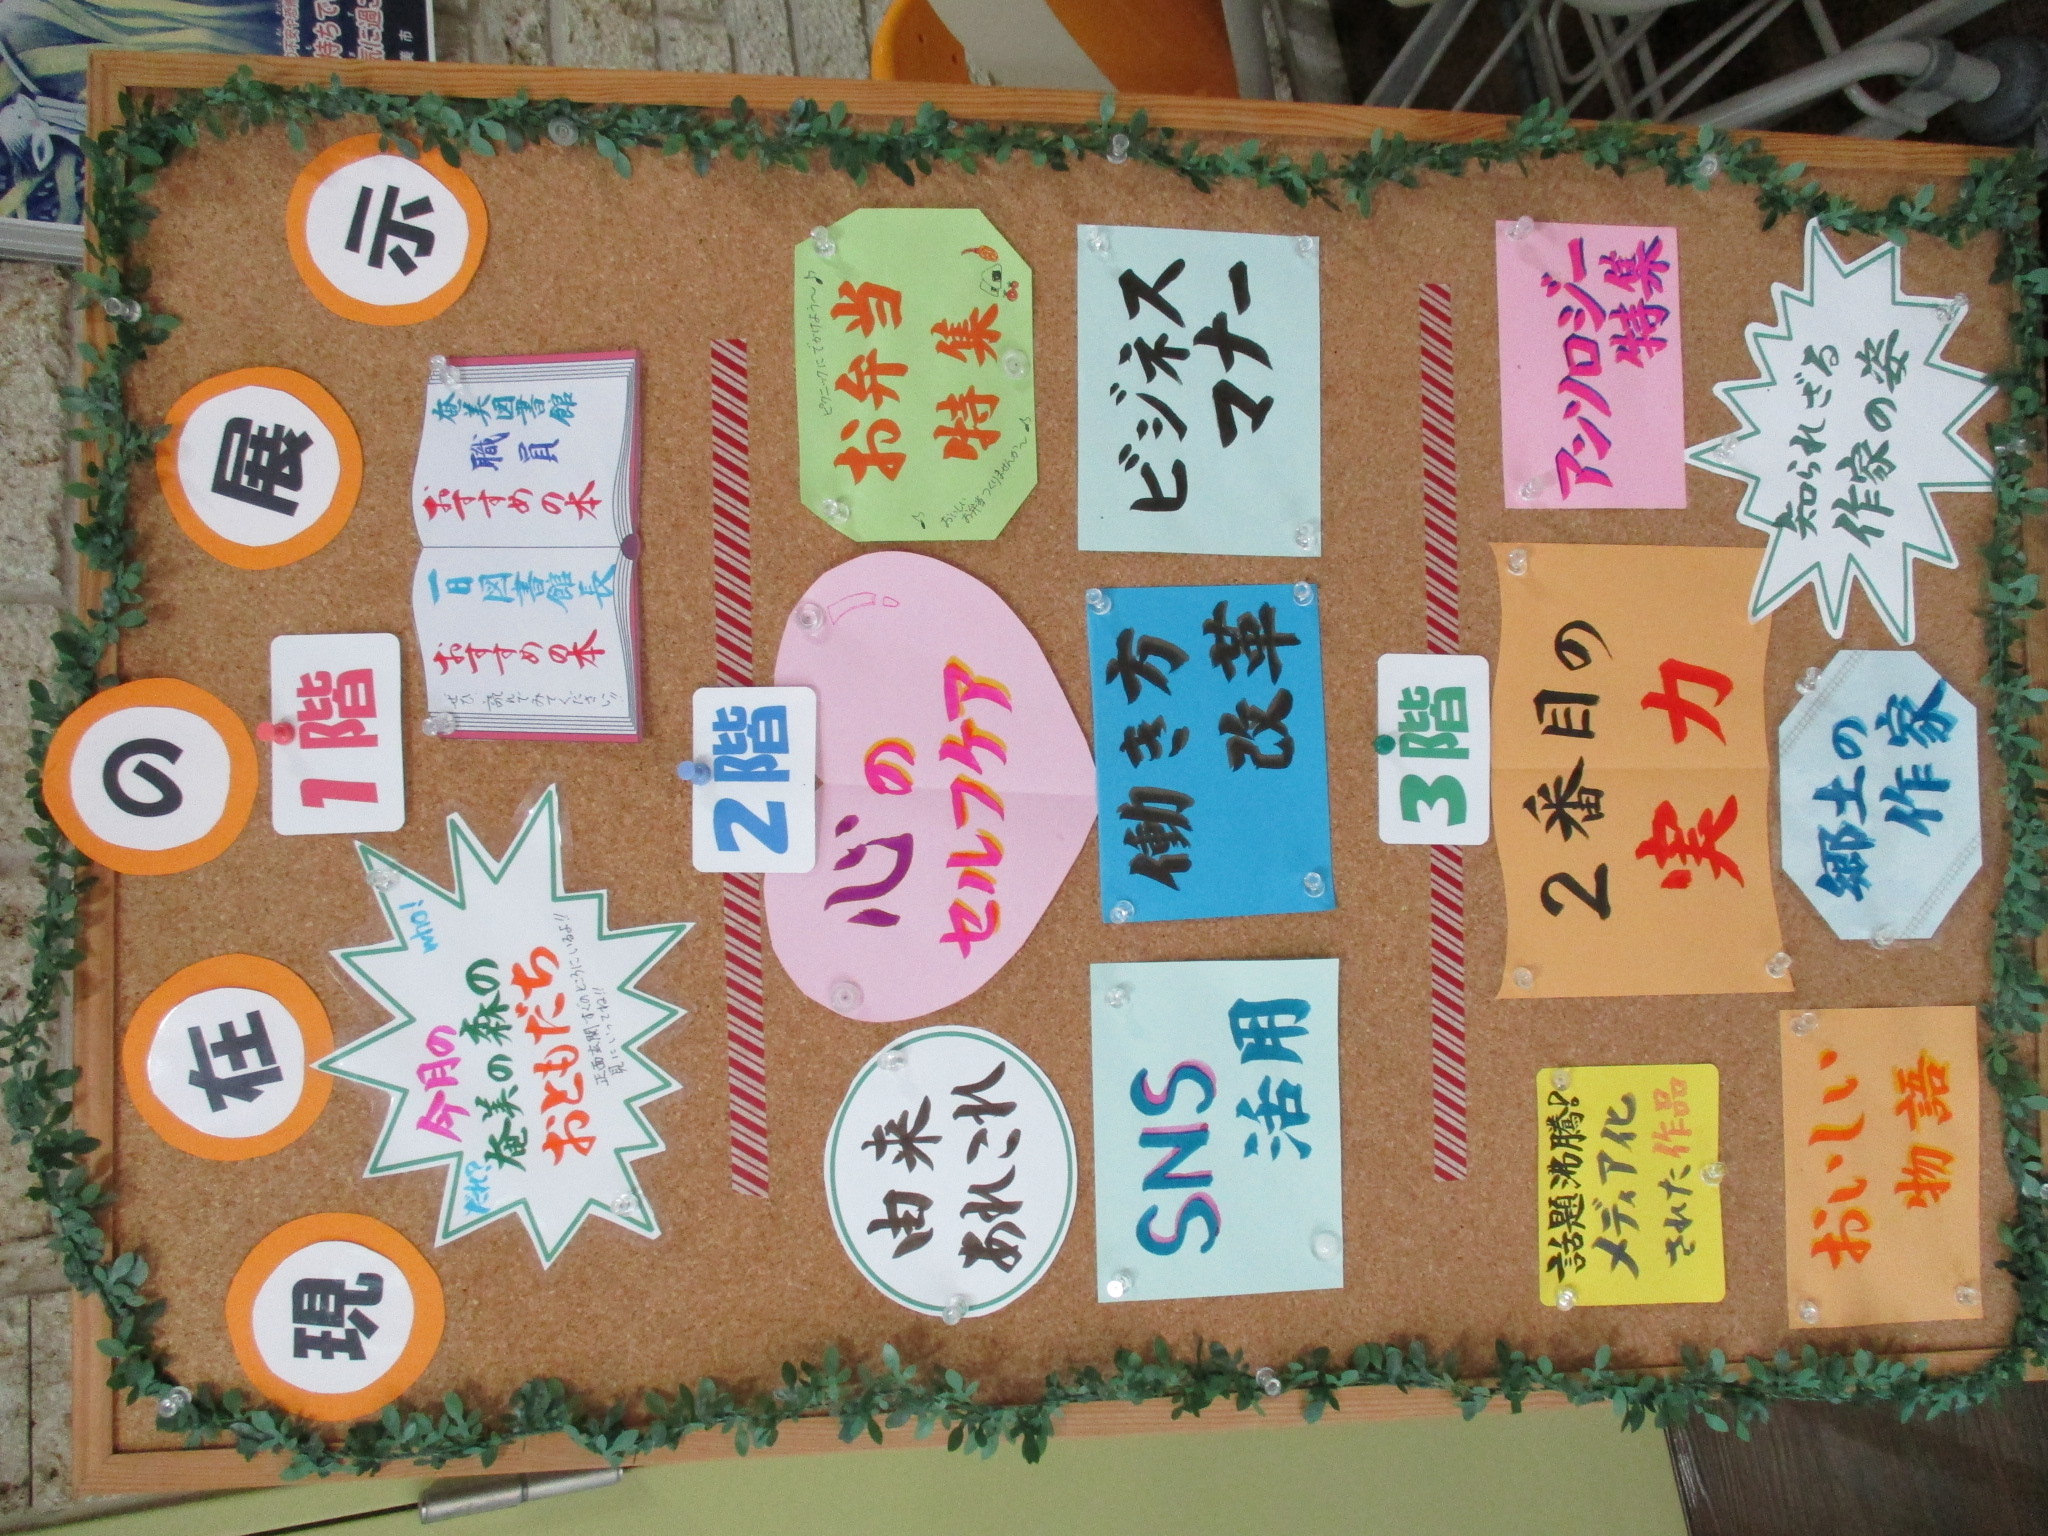 現在の展示
1階
だれ?
who!
今月の
奄美の森の
おともだち
正面玄関すぐのところにいるよ!!
見にいってね!!
一日図書館長
おすすめの本
ぜひ読んでみてください!!
奄美図書館
職員
おすすめの本
2階
由来
あれこれ
心の
セルフケア
ピクニックにでかけよう〜♪
お弁当
特集
♪おいしい
お弁当つくりませんか〜♪
SNS
活用
働き方
改革
ビジネス
マナー
3階
話題沸騰!?
メディア化
された作品
2番目の
実力
アンソロジー
特集
おいしい
物語
郷土の
作家
知られざる
作家の姿